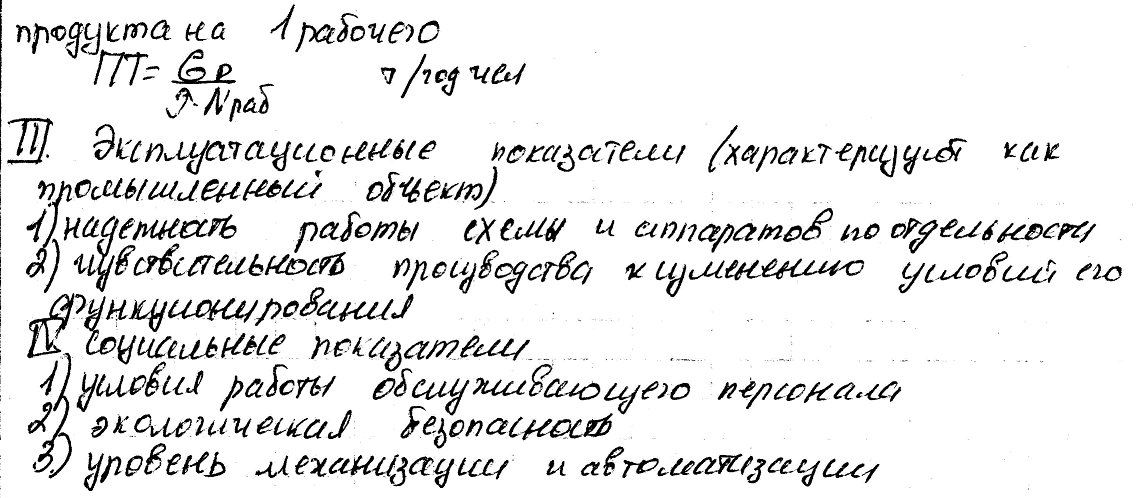 продукта на 1 рабочего
ПТ = Gр / τ·Nраб т/год чел
III. Эксплуатационные показатели (характеризуют как
промышленный объект)
1) надежность работы схемы и аппаратов по отдельности
2) чувствительность производства к изменению условий его
функционирования
IV социальные показатели
1) условия работы обслуживающего персонала
2) экологическая безопасность
3) уровень механизации и автоматизации